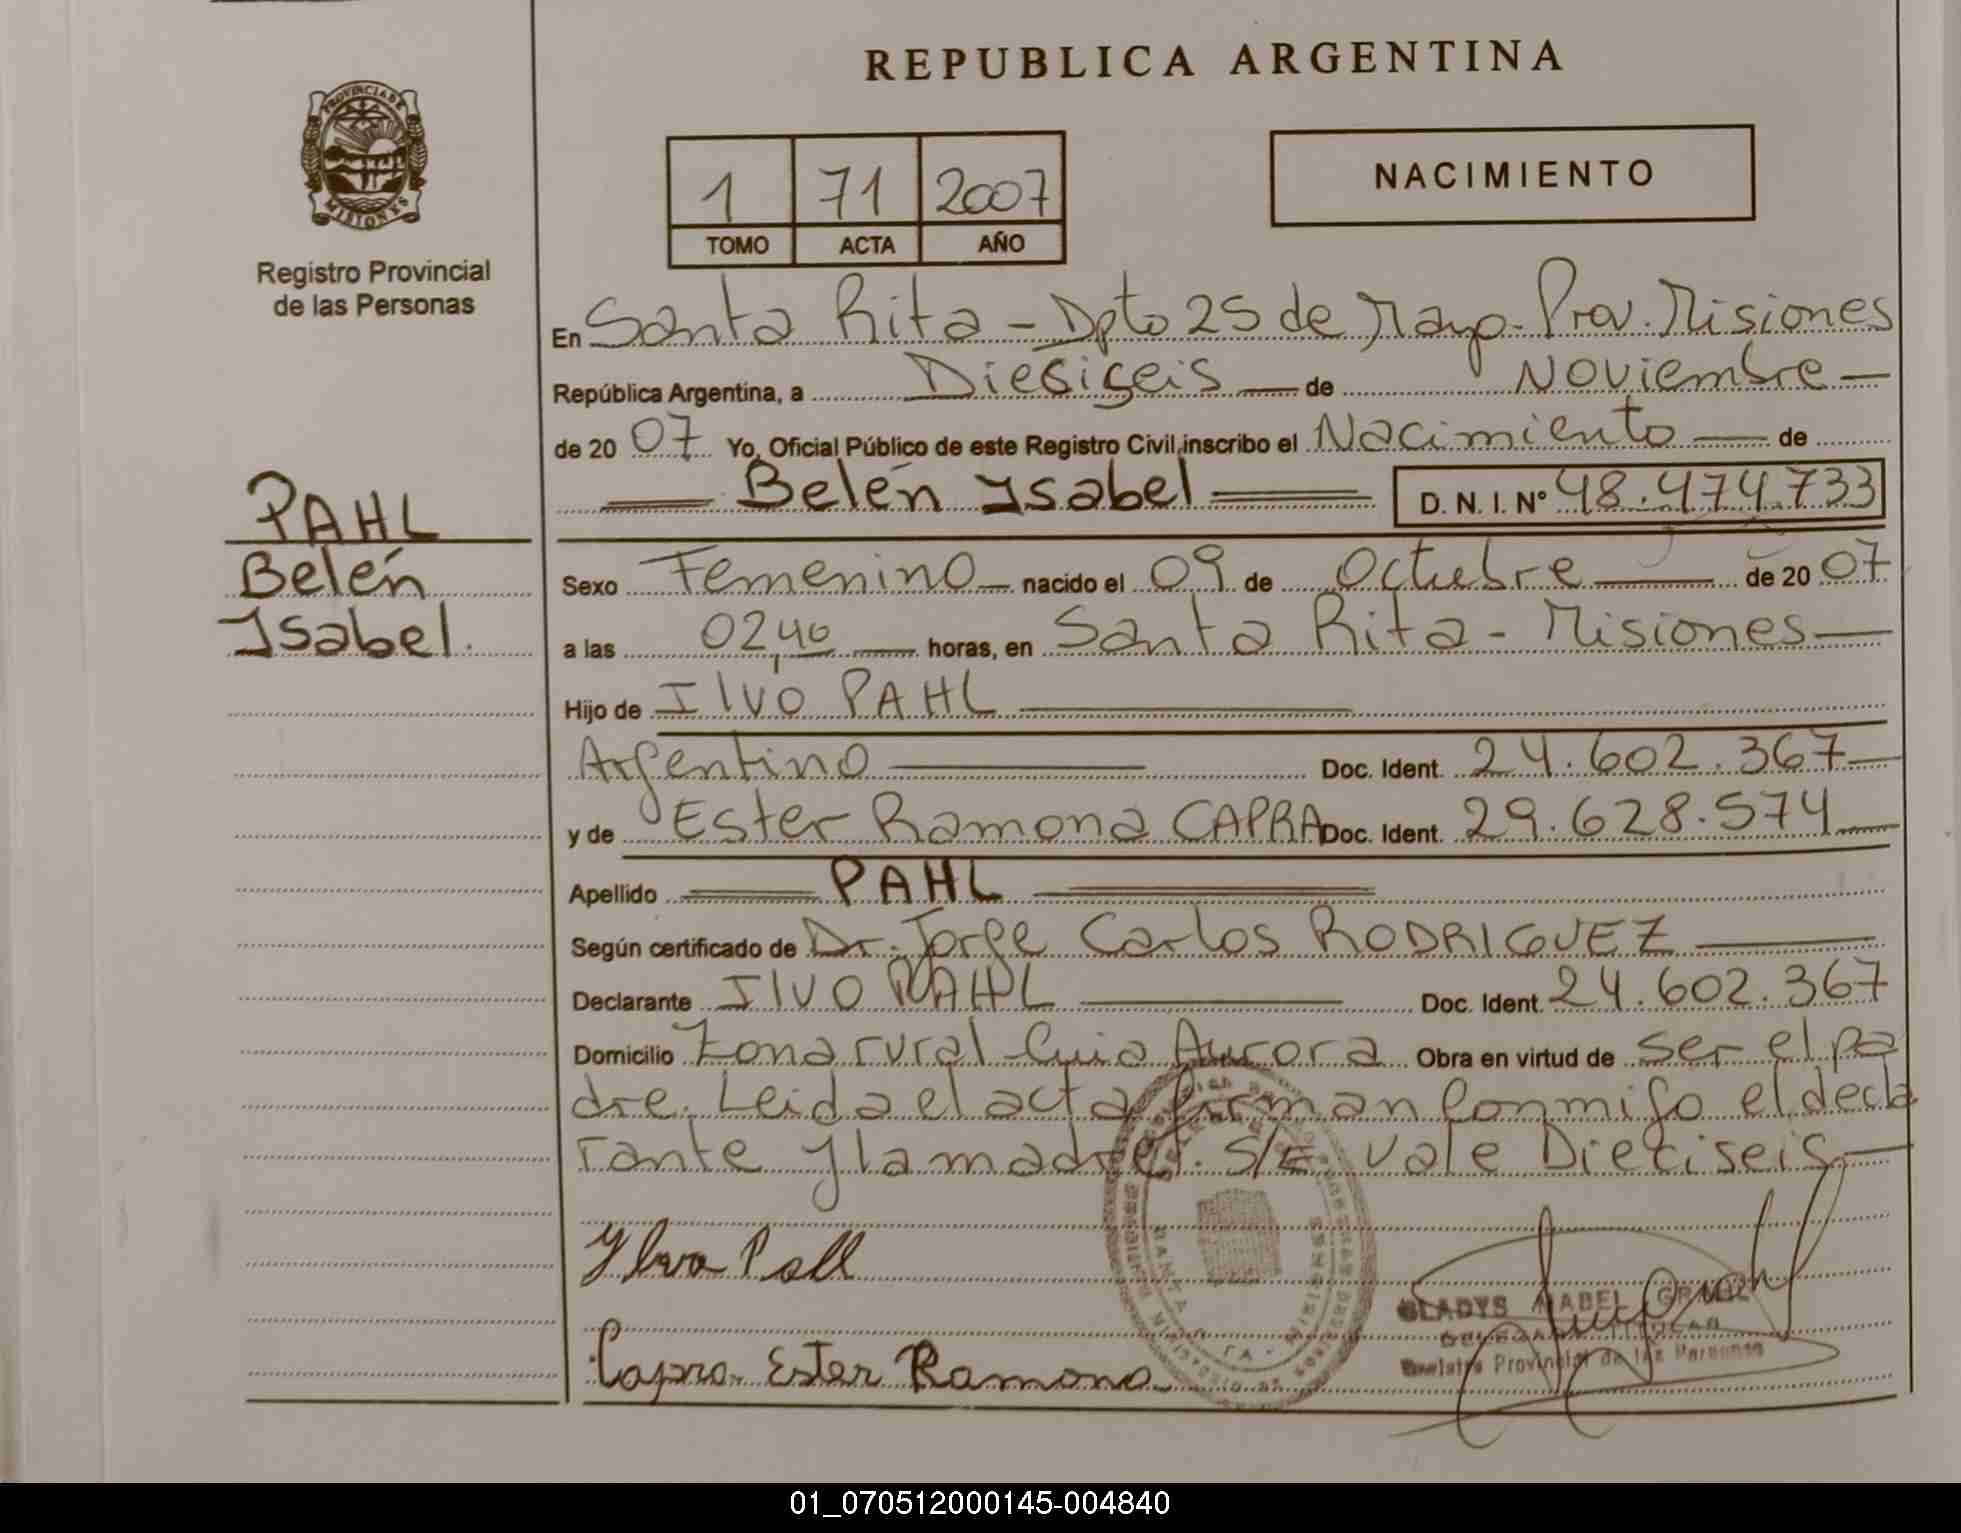 REPUBLICA ARGENTINA
PROVINCIA DE
MISIONES
Registro Provincial
de las Personas
1 71 2007
TOMO ACTA AÑO
NACIMIENTO
En Santa Rita - Dpto 25 de Mayo - Prov. Misiones
República Argentina, a Diesiseis — de Noviembre —
de 20 07 Yo, Oficial Público de este Registro Civil, inscribo el Nacimiento — de
Belén Ysabel D. N. I. Nº 48.474.733
PAHL
Belén
Ysabel.
Sexo Femenino — nacido el 09 de Octubre — de 20 07
a las 02,40 — horas, en Santa Rita - Misiones —
Hijo de Ilvo PAHL —
Argentino — Doc. Ident. 24.602.367 —
y de Ester Ramona CAPRA Doc. Ident. 29.628.574 —
Apellido PAHL
Según certificado de Dr. Jorge Carlos RODRIGUEZ —
Declarante Ilvo PAHL — Doc. Ident. 24.602.367
Domicilio Zona rural - Guia Aurora Obra en virtud de ser el pa
dre. Leida el acta firman conmigo el decla
rante y la madre. S/E. vale Dieciseis. —
Ylvo Pall
Capra Ester Ramona
GLADYS MABEL
Registro Provincial de las Personas
01_070512000145-004840